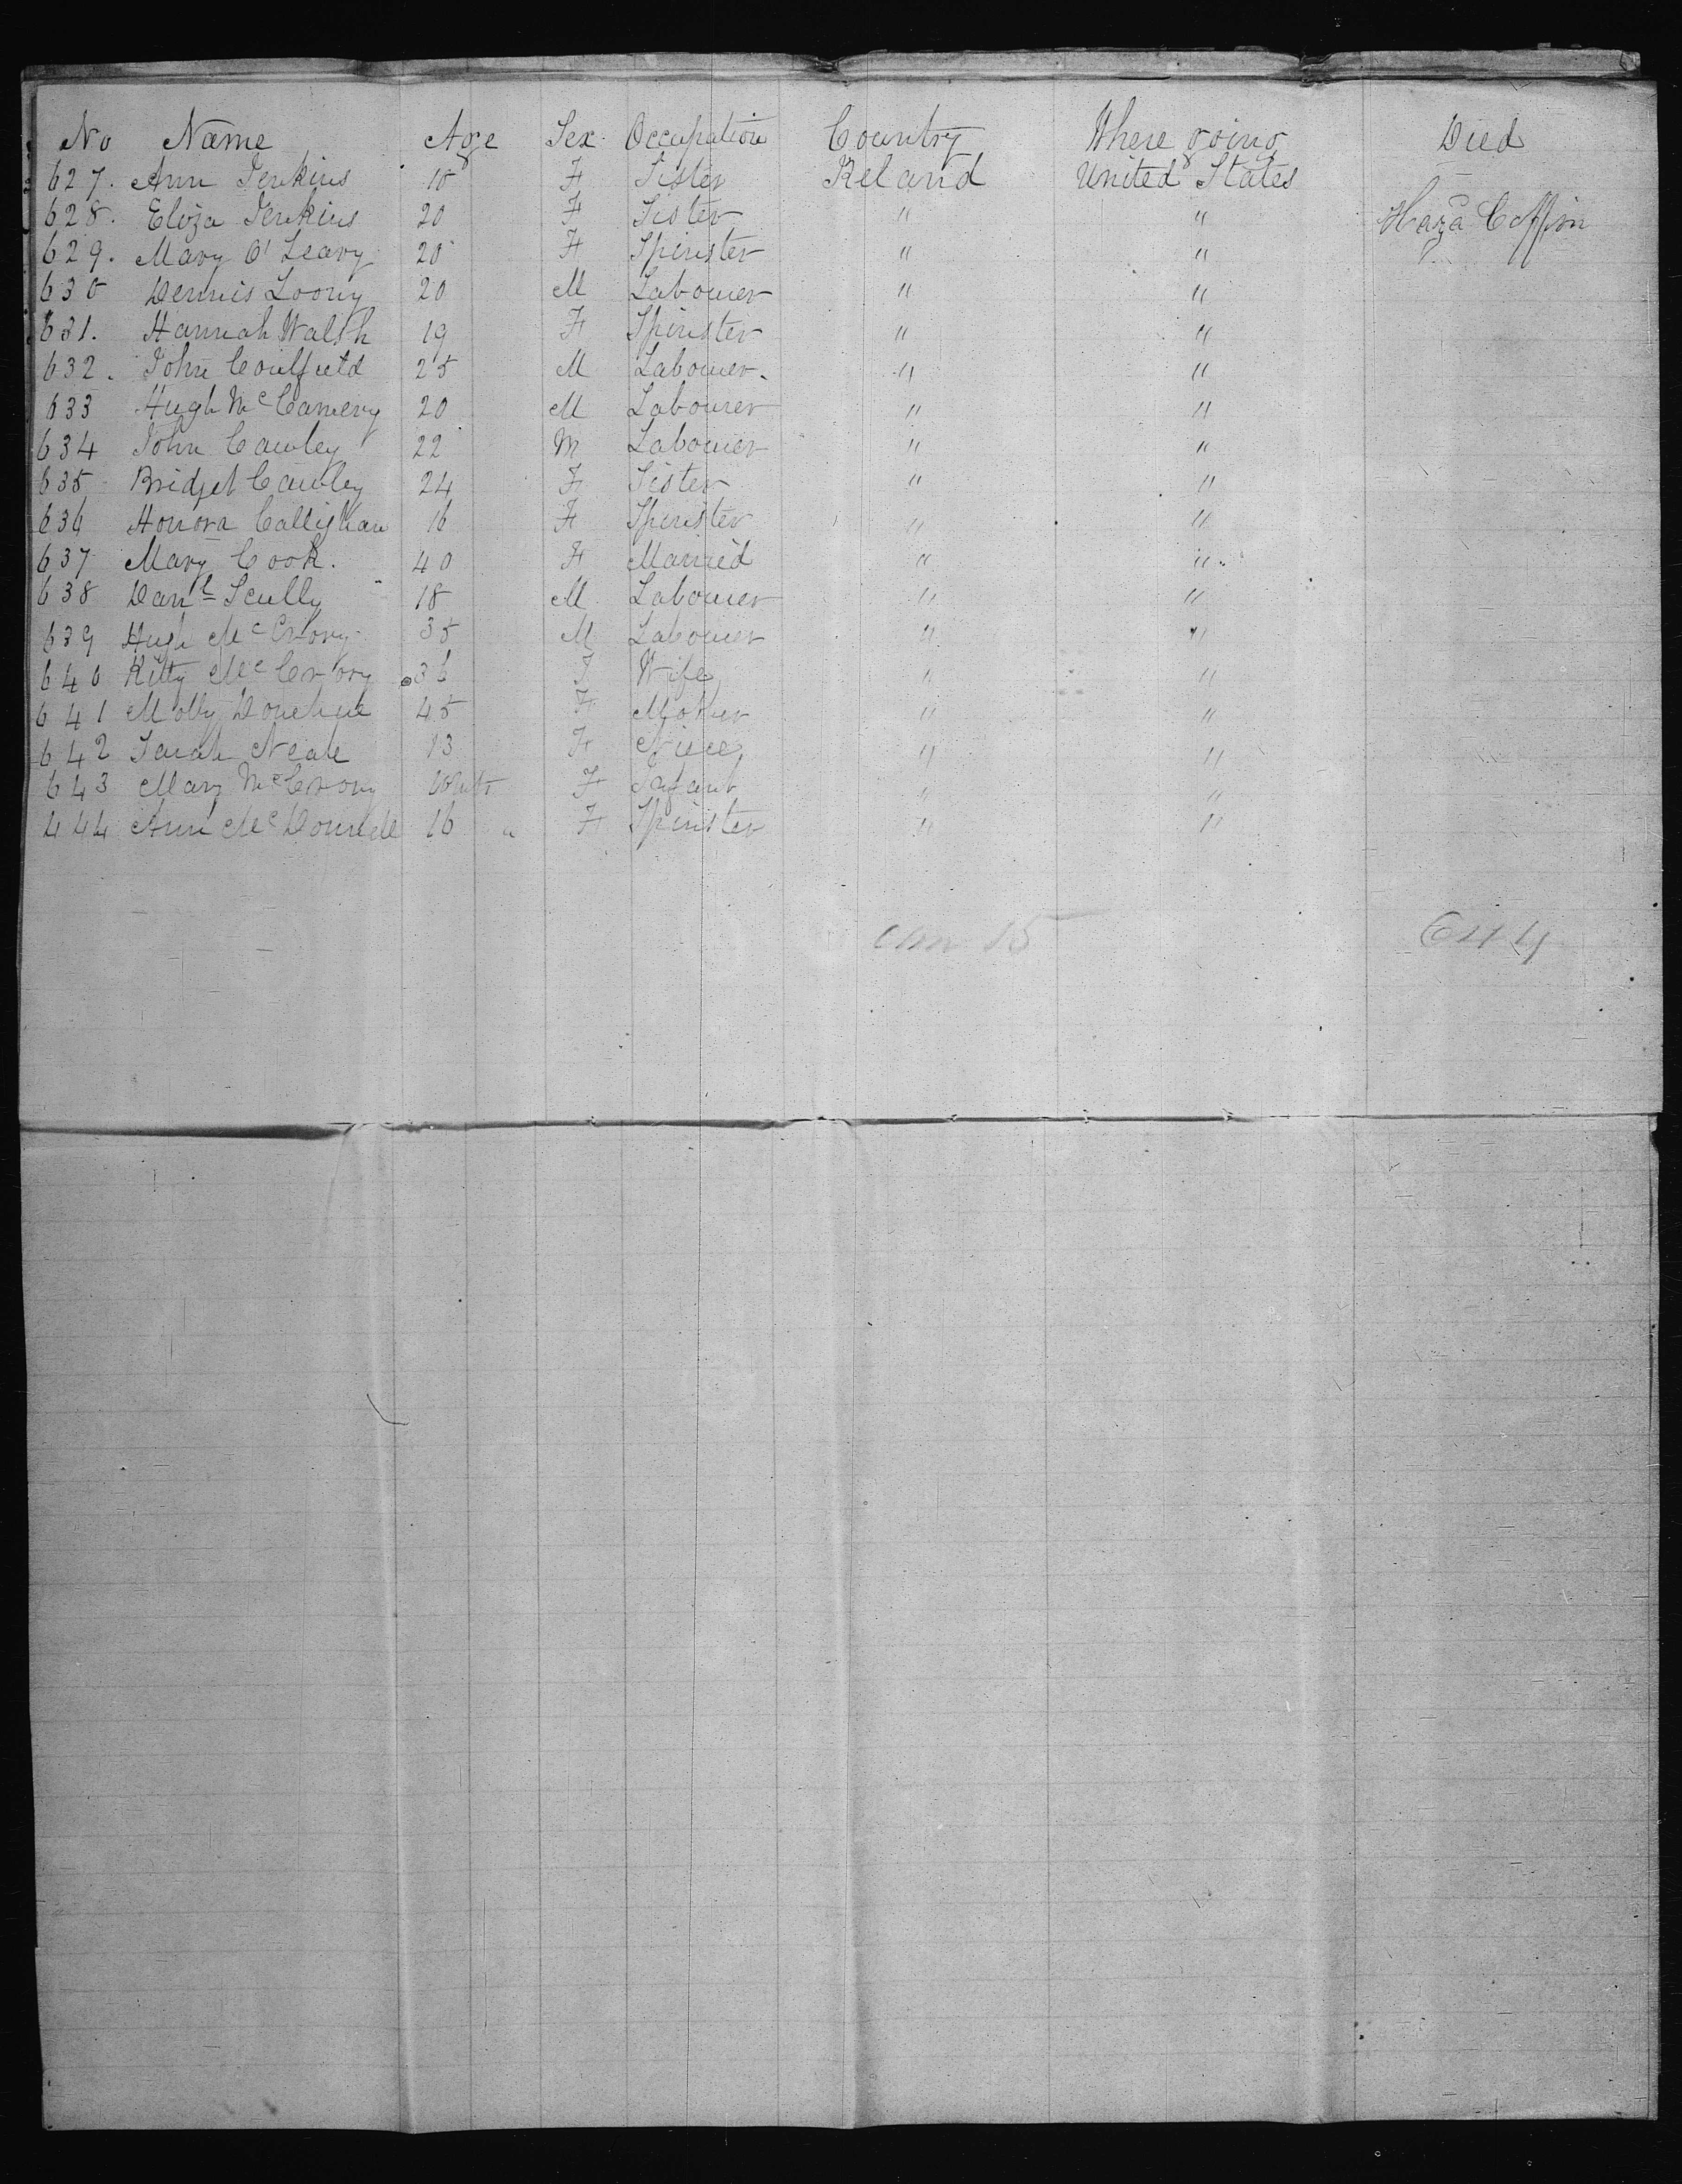 No Name Age Sex Occupation Country Where going Died
627. Ann Jenkins 18 F Sister Reland United States
628. Eliza Jenkins 20 F Sister " " Haza Coffin
629. Mary O'Leary 20 F Spinster " "
630 DennisLoony 20 M Labourer " "
631. Hannah Walsh 19 F Spinster " "
632. John Coulfield 25 M Labourer. " "
633 Hugh McCamery 20 M Labourer " "
634 John Cawley 22 M Labourer " "
635 Bridget Cawley 24 F Sister " "
636 Honora Callighan 16 F Spinster " "
637 Mary Cook. 40 F Married " "
638 Danl Scully 18 M Labourer " "
639 Hugh McCrory 35 M Labourer " "
640 Kitty McCrory 36 F Wife " "
641 Molly Donehue 45 F Mother " "
642 Sarah Neale 13 F Niece " "
643 Mary McCrory F Infant " "
444 Ann McDonnell 16 " F Spinster " "
15 644